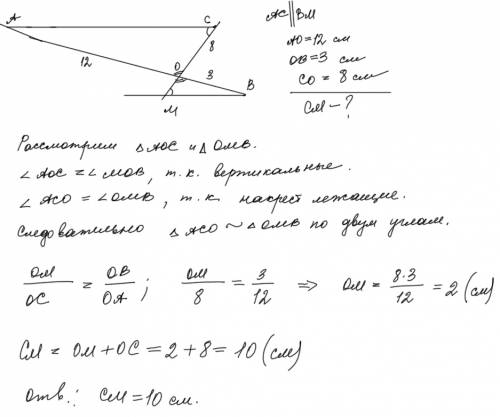 A C
8
O
12
3
B
M
AC || BM
AO = 12 см
OB = 3 см
CO = 8 см
CM - ?
Рассмотрим △ AOC и △ OMB.
∠ AOC = ∠ MOB, т.к. вертикальные.
∠ ACO = ∠ OMB, т.к. накрест лежащие.
Следовательно △ ACO ~ △ OMB по двум углам.
OM/OC = OB/OA ; OM/8 = 3/12 => OM = 8·3/12 = 2 (см)
CM = OM + OC = 2 + 8 = 10 (см)
Отв.: CM = 10 см.